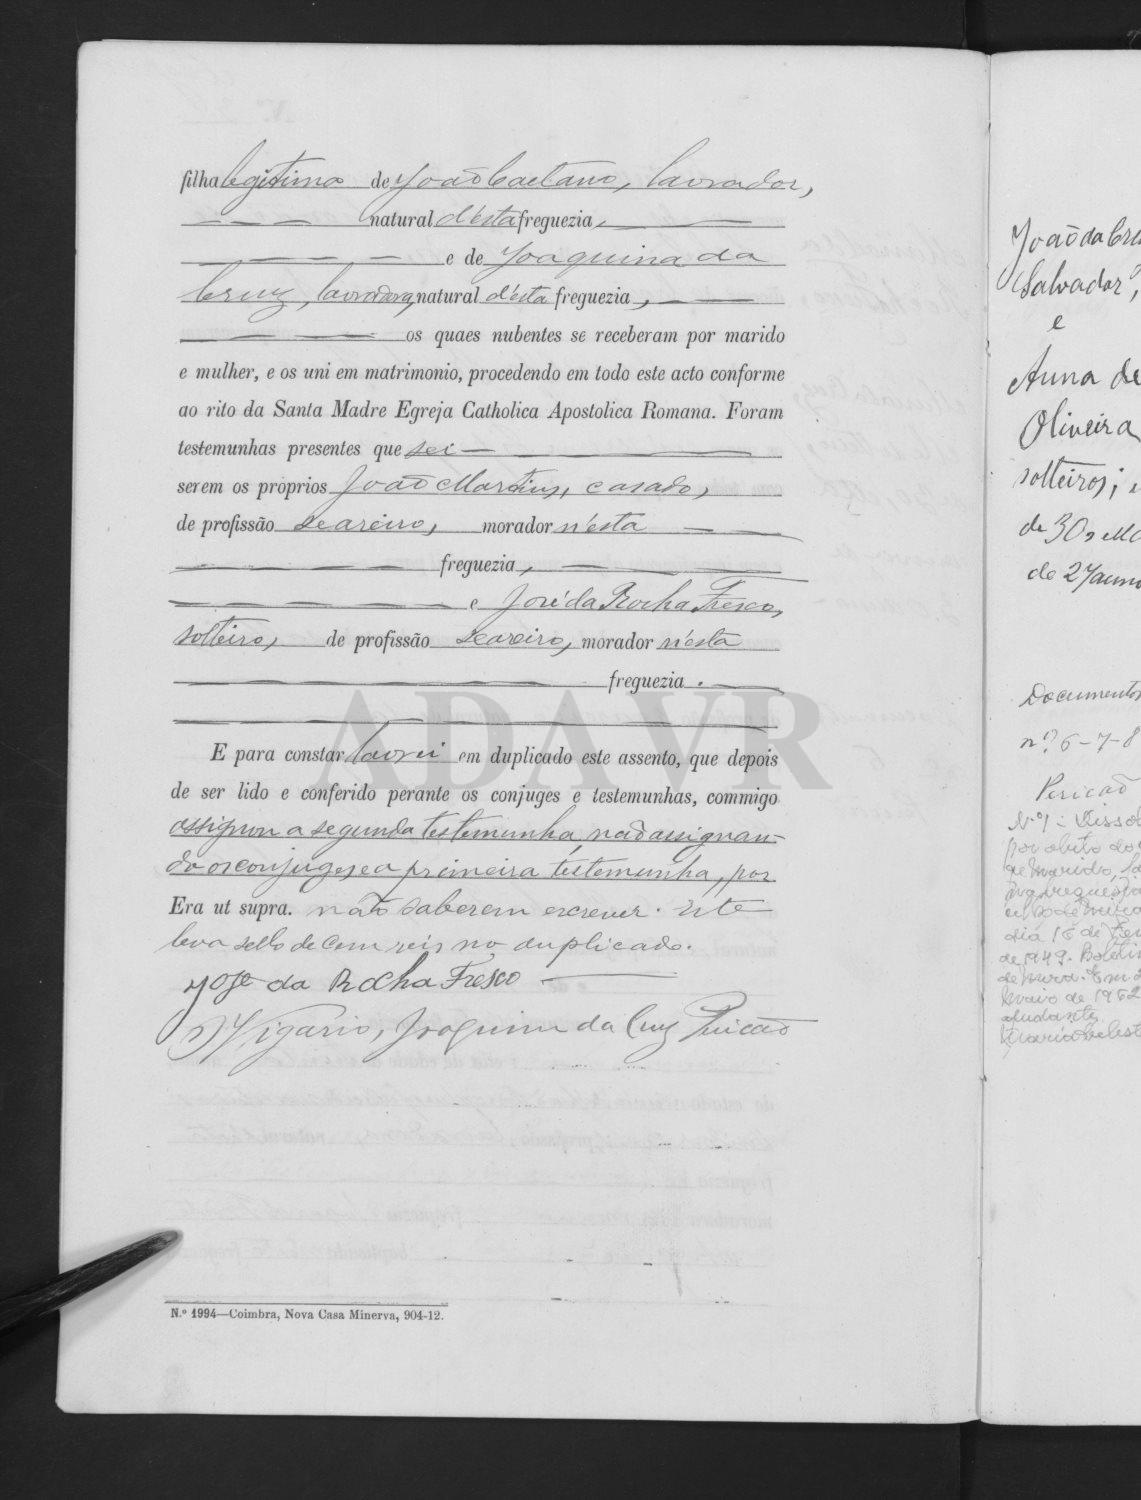 filha legitima de João Caetano, lavrador,
natural d'esta freguezia,
e de Joaquina da
Cruz, lavradora, natural d'esta freguezia,
os quaes nubentes se receberam por marido
e mulher, e os uni em matrimonio, procedendo em todo este acto conforme
ao rito da Santa Madre Egreja Catholica Apostolica Romana. Foram
testemunhas presentes que sei
serem os proprios João Martins, casado,
de profissão seareiro, morador n'esta
freguezia,
e José da Rocha Fresco,
solteiro, de profissão seareiro, morador n'esta
freguezia.
ADAVR
E para constar lavrei em duplicado este assento, que depois
de ser lido e conferido perante os conjuges e testemunhas, commigo
assignou a segunda testemunha, não assignan-
do os conjuges, e a primeira testemunha, por
Era ut supra. não saberem escrever. Este
leva sello de cem reis no duplicado.
José da Rocha Fresco
O Vigario, Joaquim da Cruz Pericão
N.º 1994—Coimbra, Nova Casa Minerva, 904-12.
João da
Salvador,
e
Anna de
Oliveira
solteiros;
de 30
de 27 annos
Documentos
nº 6-7-8
Pericão
Nº 1
por obito do
de marido,
freguezia
dia 16 de
de 1949. Boletim
de Mira. Em
Maio de 1952
ajudante
Maria